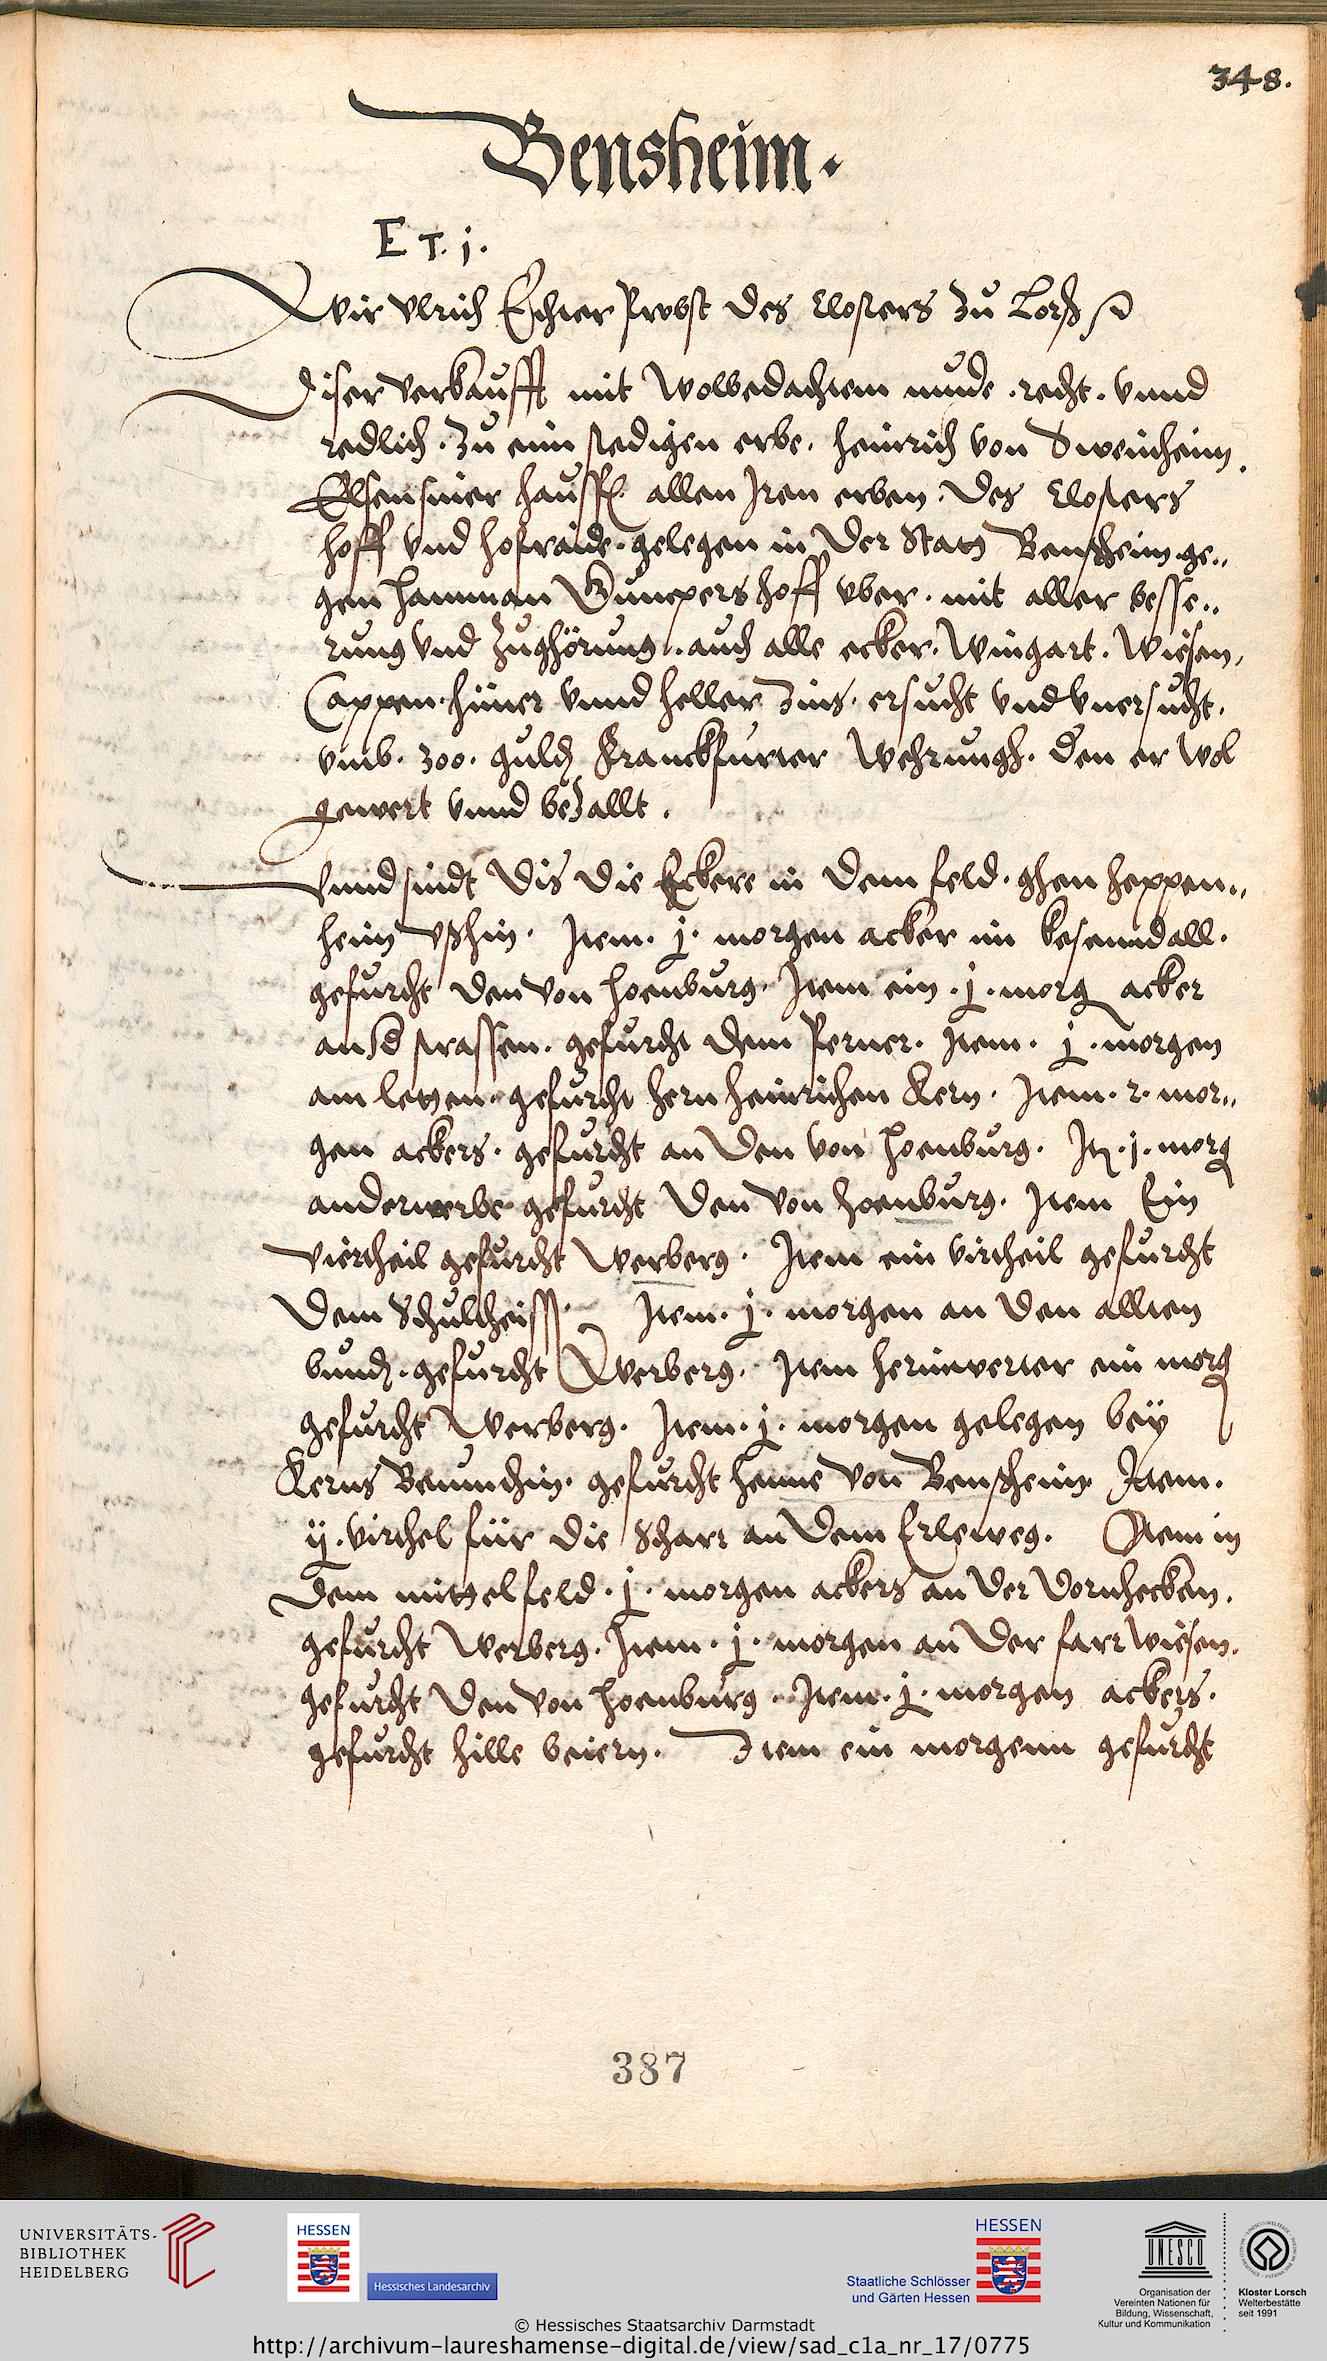 348.
Bensheim.
E T. j.
Wir Vlrich Echter Probst des Closters zu Lorß
diser verkaufft mit wolbedachtem mude . recht . vnnd
redlich . zu eim stedigen erbe . heinrich von Sweinheim.
Elsen siner hausf. allen Iren erben . des Closters
hoff vnd hofraide . gelegen in der Statt Bensheim . ge„
gen hamman hoff vber . mit aller besse„
rung vnd zughörung . auch alle ecker . Wingart . Wiesen,
Cappen . hüner vnnd heller zins . ersucht vnd vnersucht .
vmb . 300 . guld Franckfurter Wehrungh . den er wol
gewert vnnd bezallt .
Vnnd sindt dis die Eckere in dem feld . ghen heppen„
heim vßhin . Item . j . morgen acker im kesenndall .
gefurcht den von hoenburg . Item ein . j . morg acker
an d strassen . gefurcht dem Perner . Item . j . morgen
am letzen . gefurcht hern heinrichen Kern . Item . 2 . mor„
gen ackers . gefurcht an den von hoenburg . It . j . morg
anderwerbe gefurcht den von hoenburg . Item Ein
viertheil gefurcht Werberg . Item ein virtheil gefurcht
dem Schultheiss . Item . j . morgen an den allten
bund . gefurcht Werberg . Item herinwerter ein morg
gefurcht Werberg . Item . j . morgen gelegen beÿ
Kerns Beumchin . gefurcht henne von Bensheim . Item .
ij . virthel für die Scharr an dem Erleweg . Item in
dem mittelfeld . j . morgen ackers an der Dornhecken .
gefurcht Werberg . Item . j . morgen an der farrwiesen .
gefurcht den von hoenburg . Item . j . morgen ackers .
gefurcht hille beiern . Item ein morgenn gefurcht
387
UNIVERSITÄTS-
BIBLIOTHEK
HEIDELBERG
HESSEN
Hessisches Landesarchiv
HESSEN
Staatliche Schlösser
und Gärten Hessen
UNESCO
Organisation der
Vereinten Nationen für
Bildung, Wissenschaft,
Kultur und Kommunikation
Kloster Lorsch
Welterbestätte
seit 1991
© Hessisches Staatsarchiv Darmstadt
http://archivum-laureshamense-digital.de/view/sad_c1a_nr_17/0775